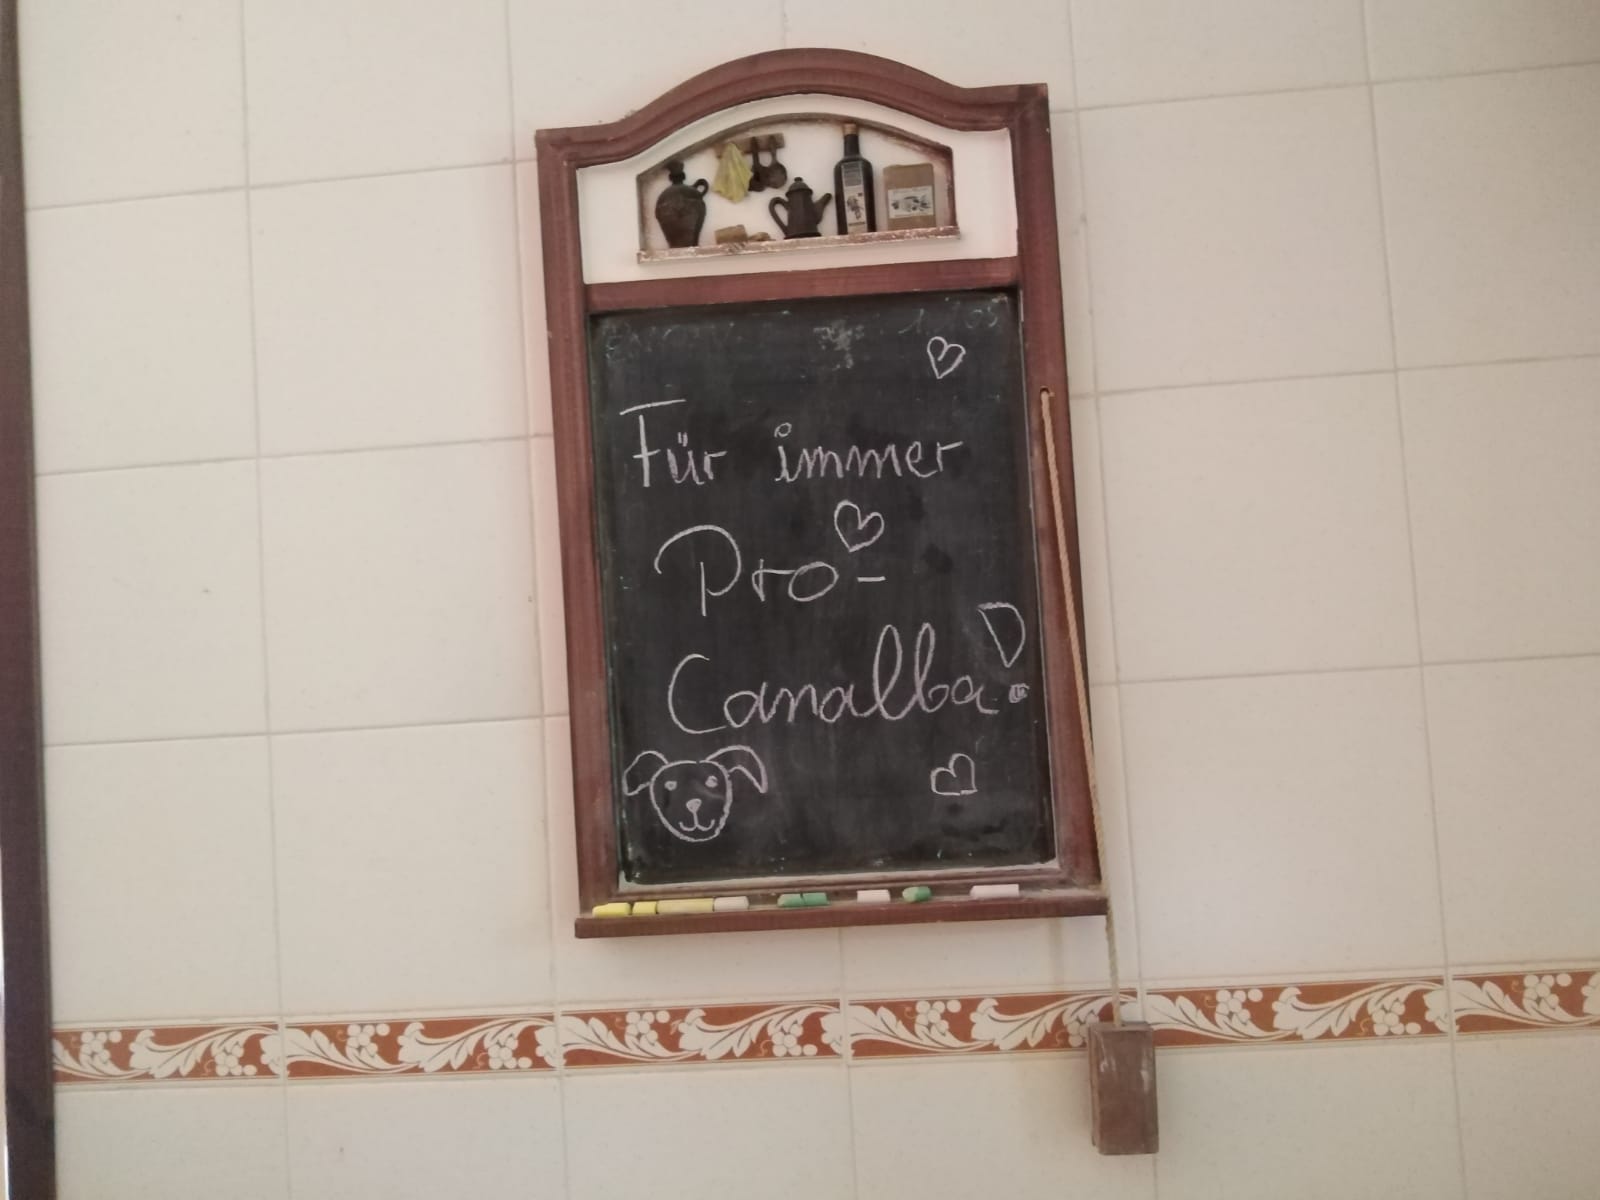 Für immer
Pro-
Canalba!